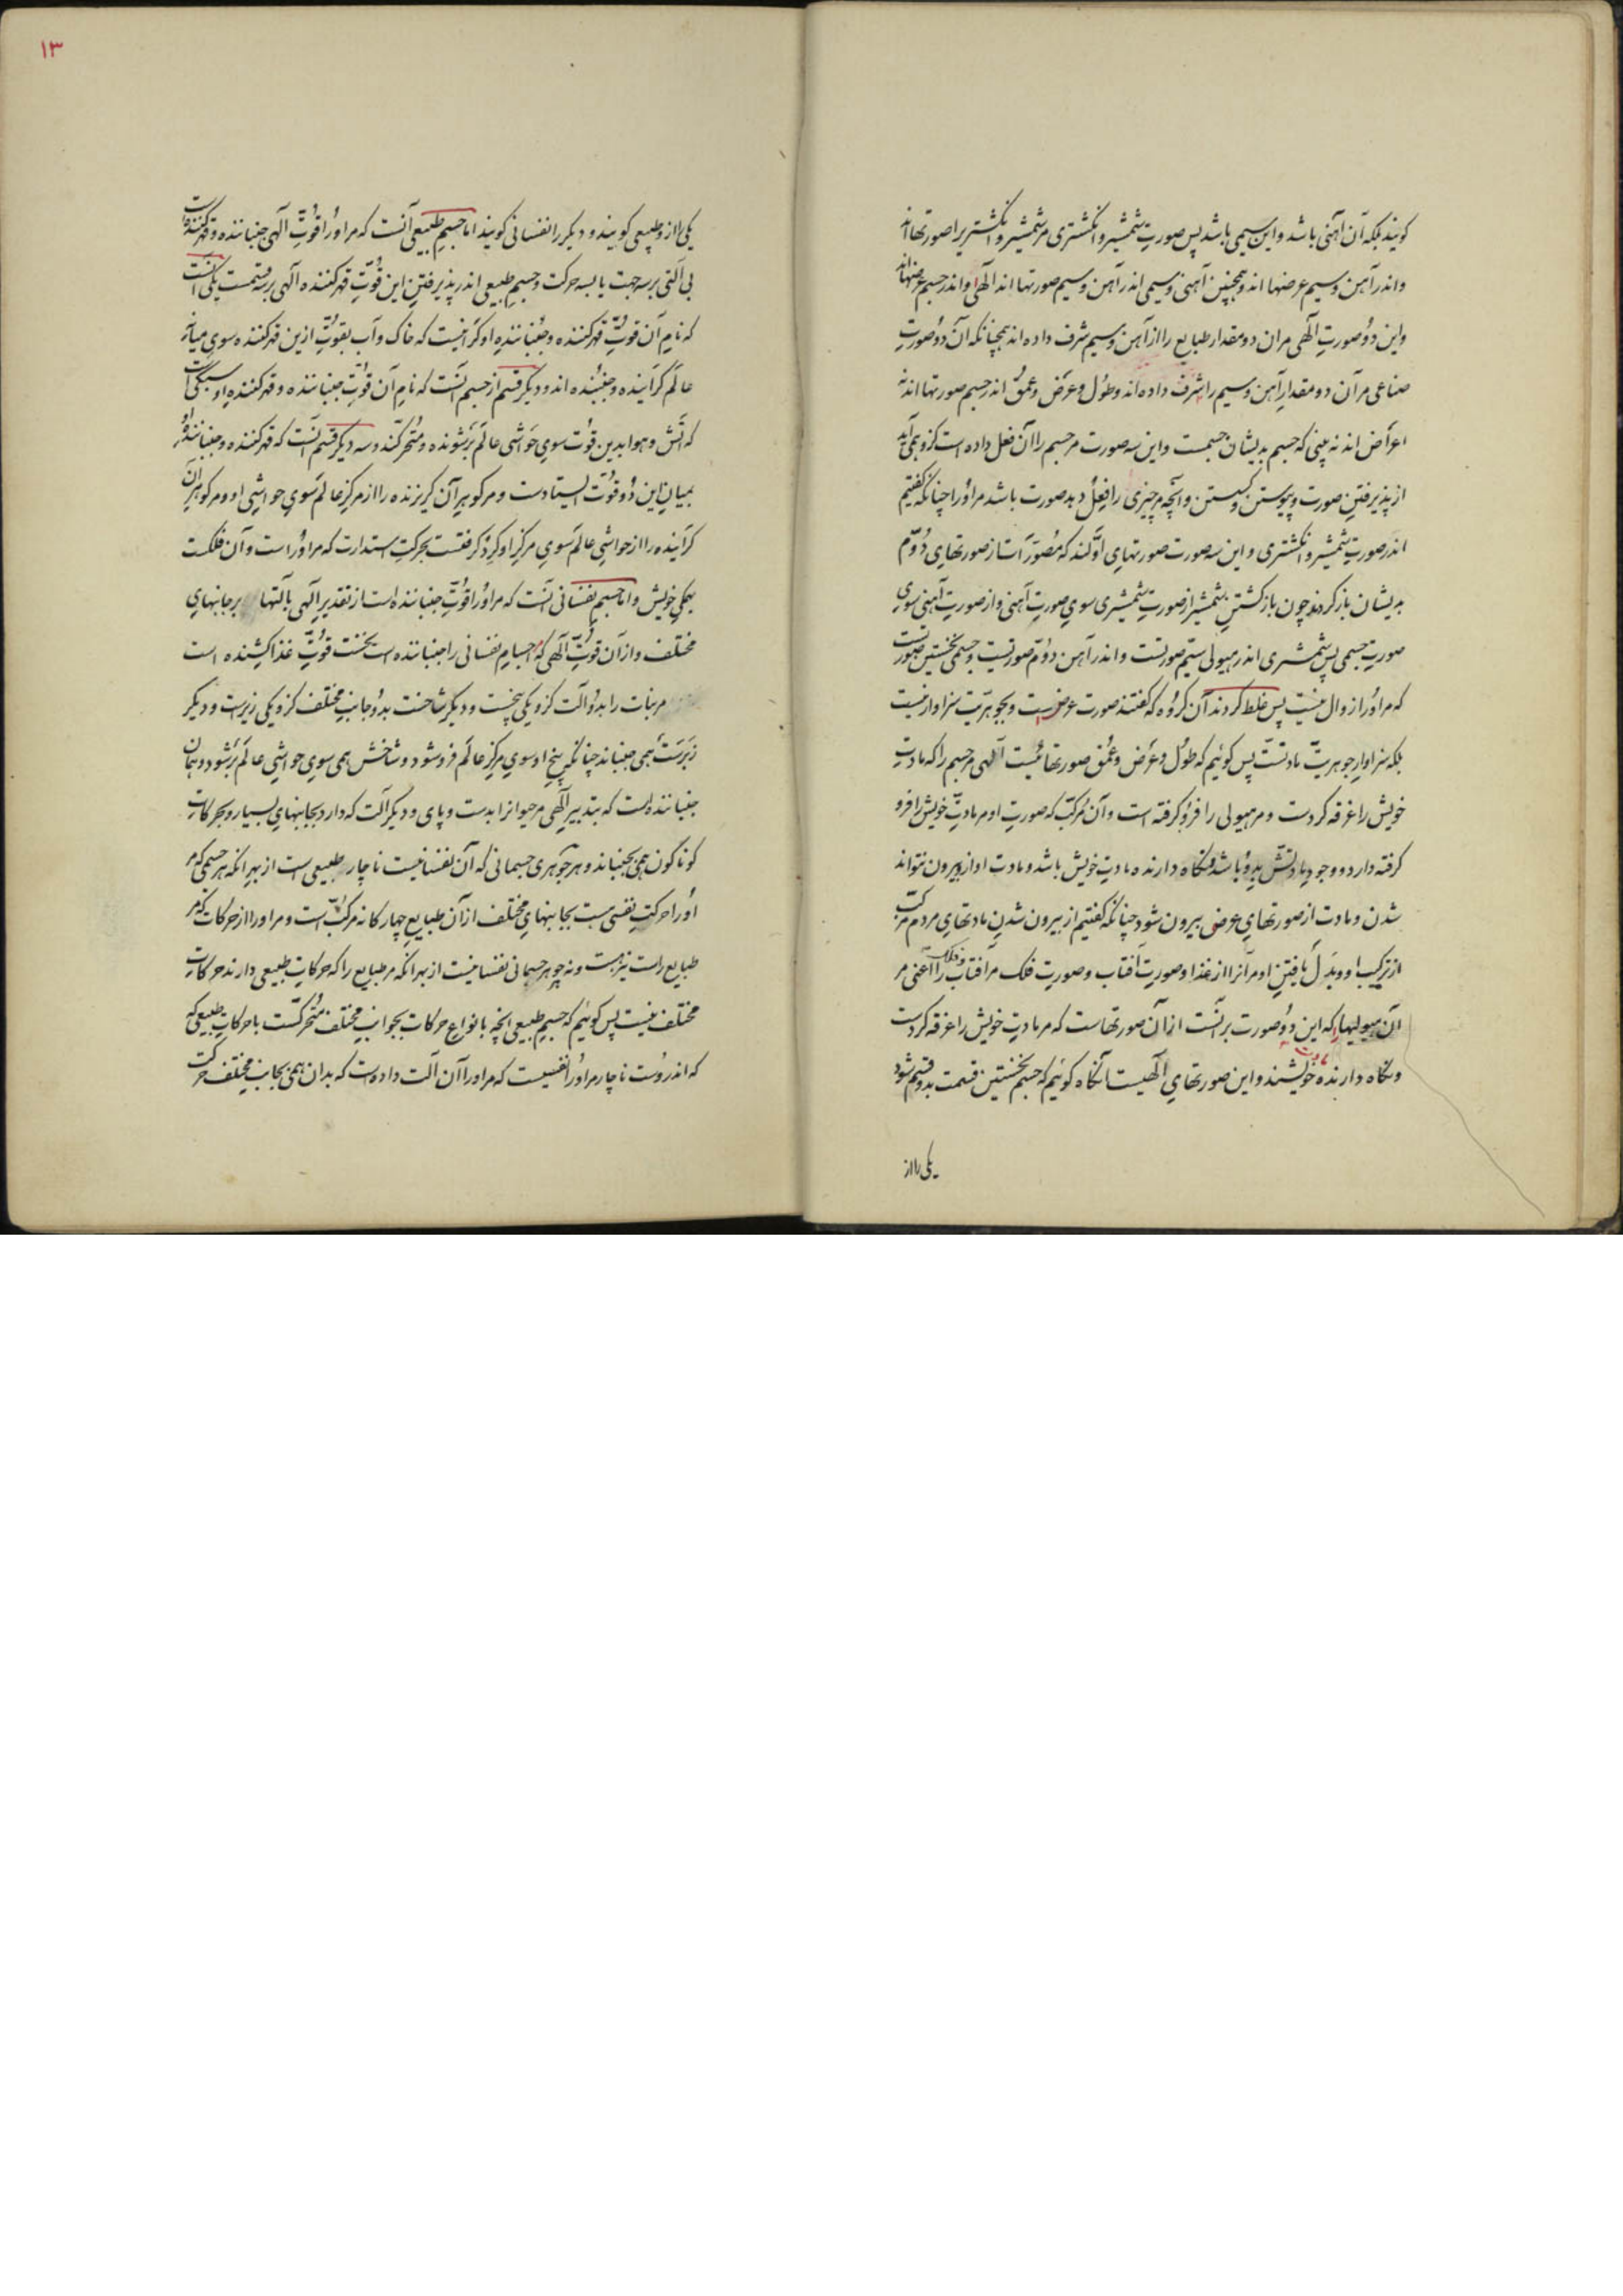 کویند بلکه آن آهنی باشد و این سیمی باشد پس صورتِ شمشیر و انکشتری مر شمشیر و انکشتریرا صورتها اند
و اندر آهن و سیم عرضها اند و همچنین آهنی و سیمی اندر آهن و سیم صورتها اند الهی و اندر جسم عرضها اند
و این دو صورتِ الهی مر ان دو مقدار طبایع را از آهن و سیم شرف داده اند همچنانکه آن دو صورتِ
صناعی مر آن دو مقدارِ آهن و سیم را شرف داده اند و طول و عرض و عمق اندر جسم صورتها اند نه
اعراض اند نه بینی که جسم بدیشان جسمست و این سه صورت مر جسم را آن فعل داده است کزو همی آید
از پذیرفتنِ صورت و پیوستن و کسستن و آنچه مر چیزی را فعل دهد صورت باشد مر اورا چنانکه کفتیم
اندر صورتِ شمشیر و انکشتری و این سه صورت صورتهایِ اوّلند که مصوّر است از صورتهایِ دوّم
بدیشان باز کردد چون باز کشتنِ شمشیر از صورتِ شمشیری سویِ صورتِ آهنی و از صورتِ آهنی سویِ
صورتِ جسمی پس شمشیری اندر هیولی سیم صورتست و اندر آهن دوّم صورتیست و جسمی نخستین صورتست
که مر اورا زوال نیست پس غلط کردند آن کروه که کفتند صورت عرض است و بجوهریّت سزاوار نیست
بلکه سزاوارِ جوهریّت مادتست پس کوئیم که طول و عرض و عمق صورتهائیست الهی مر جسم را که مادتِ
خویش را غرقه کردست و مر هیولی را فرو کرفته است و آن مرکّب که صورتِ او مر مادتِ خویش را فرو
کرفته دارد و وجودِ مادتش بدو باشد و نکاه دارنده مادتِ خویش باشد و مادت او ازو بیرون نتواند
شدن و مادت از صورتهایِ عرضی بیرون شود چنانکه کفتیم از بیرون شدنِ مادتهایِ مردم مرکّب
از ترکیب او و بدل یافتنِ او مر آنرا از غذا و صورتِ آفتاب و صورتِ فلک مر آفتاب و فلک را اعنی مر
آن هیولیها را که این دو صورت بر آنست از آن صورتهاست که مر مادتِ خویش را غرقه کردست
و نکاه دارنده مادت خویشند و این صورتهایِ الهیست آنکاه کوئیم که جسم نخستین قسمت بدو قسم شود
یکی را از
۱۳
یکی را ازو طبیعی کویند و دیکر را نفسانی کویند اما جسمِ طبیعی آنست که مر اورا قوّتِ الهی جنباننده و قهر کننده است
بی آلتی بر سه جهت یا بسه حرکت و جسم طبیعی اندر پذیرفتنِ این قوّتِ قهر کننده الهی بر سه قسمت یکی آنست
که نامِ آن قوّتِ قهر کننده و جنبانندهِ او کرانیست که خاک و آب بقوّتِ ازین قهر کننده سویِ میانهِ
عالم کراینده و جنبنده اند و دیکر قسم از جسم آنست که نامِ آن قوّتِ جنباننده و قهر کنندهِ او سبکی است
که آتش و هوا بدین قوّت سویِ حواشیِ عالم برشونده و متحرکند و سه دیکر قسم آنست که قهر کننده و جنبانندهِ او
بمیانِ این دو قوّت ایستادست و مر کوهرِ آن کریزنده را از مرکزِ عالم سویِ حواشیِ او و مر کوهرِ آن
کراینده را از حواشیِ عالم سویِ مرکزِ او کرد کرفتست بحرکتِ استدارت که مر اوراست و آن فلکست
بهمکیِ خویش و اما جسمِ نفسانی آنست که مر اورا قوّتِ جنباننده است از تقدیرِ الهی بآلتها بر جانبهایِ
مختلف و از آن قوّتِ الهی که اجسامِ نفسانی را جنباننده است نخست قوّتِ غذا کشنده است
مر نبات را بدو آلت کزو یکی بیخست و دیکر شاخست بدو جانبِ مختلف کزو یکی زیرست و دیکر
زبرست همی جنباند چنانکه بیخِ او سویِ مرکزِ عالم فرو شود و شاخش همی سویِ حواشیِ عالم برشود و بجان
جنباننده است که بتدبیرِ الهی مر حیوانرا بدست و پای و دیکر آلت که دارد بجانبهایِ بسیار و بحرکاتِ
کوناکون همی بجنباند و هر جوهری جسمانی که آن نفسانیست ناچار طبیعی است از بهرِ انکه هر جسمی که مر
اورا حرکتِ نفسی هست بجانبهایِ مختلف از آن طبایعِ چهارکانه مرکّب است و مر اورا از حرکات که مر
طبایع راست نیز هست و نه هر جوهرِ جسمانی نفسانیست از بهرِ انکه مر طبایع را که حرکاتِ طبیعی دارند حرکاتِ
مختلف نیست پس کوئیم که جسم طبیعی انچه بانواعِ حرکات بجوانبِ مختلف متحرّکست با حرکاتِ طبیعی که
که اندروست ناچار مر اورا نفسیست که مر اورا آن آلت دادست که بدان همی بجانبِ مختلف حرکت